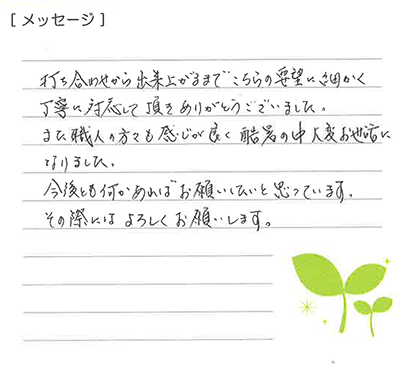 [メッセージ]
打ち合わせから出来上がるまでこちらの要望に細かく
丁寧に対応して頂きありがとうございました。
また職人の方々も感じが良く酷暑の中大変お世話に
なりました。
今後とも何かあればお願いしたいと思っています。
その際にはよろしくお願いします。